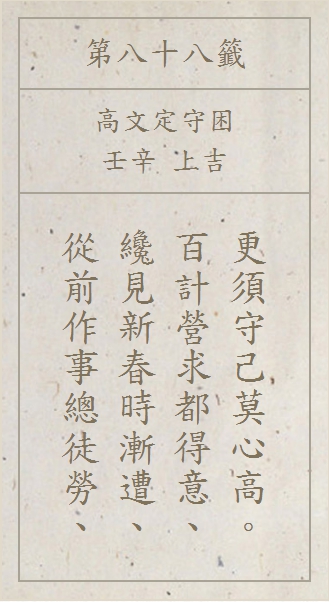 第八十八籤
高文定守困
壬辛 上吉
從前作事總徒勞、
纔見新春時漸遭、
百計營求都得意、
更須守己莫心高。